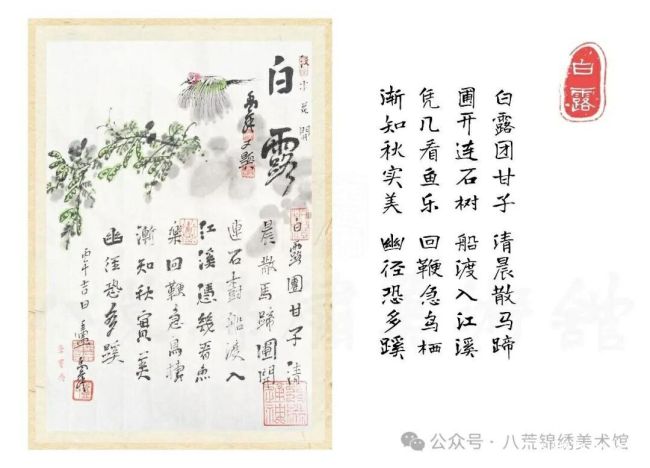 白露
白露團甘子清
晨散馬蹄圃開
連石樹船渡入
江溪憑幾看魚
樂回鞭急鳥棲
漸知秋實美
幽徑恐多蹊
丙午吉日
白露
白露团甘子 清晨散马蹄
圃开连石树 船渡入江溪
凭几看鱼乐 回鞭急鸟栖
渐知秋实美 幽径恐多蹊
公众号·八荒锦绣美术馆